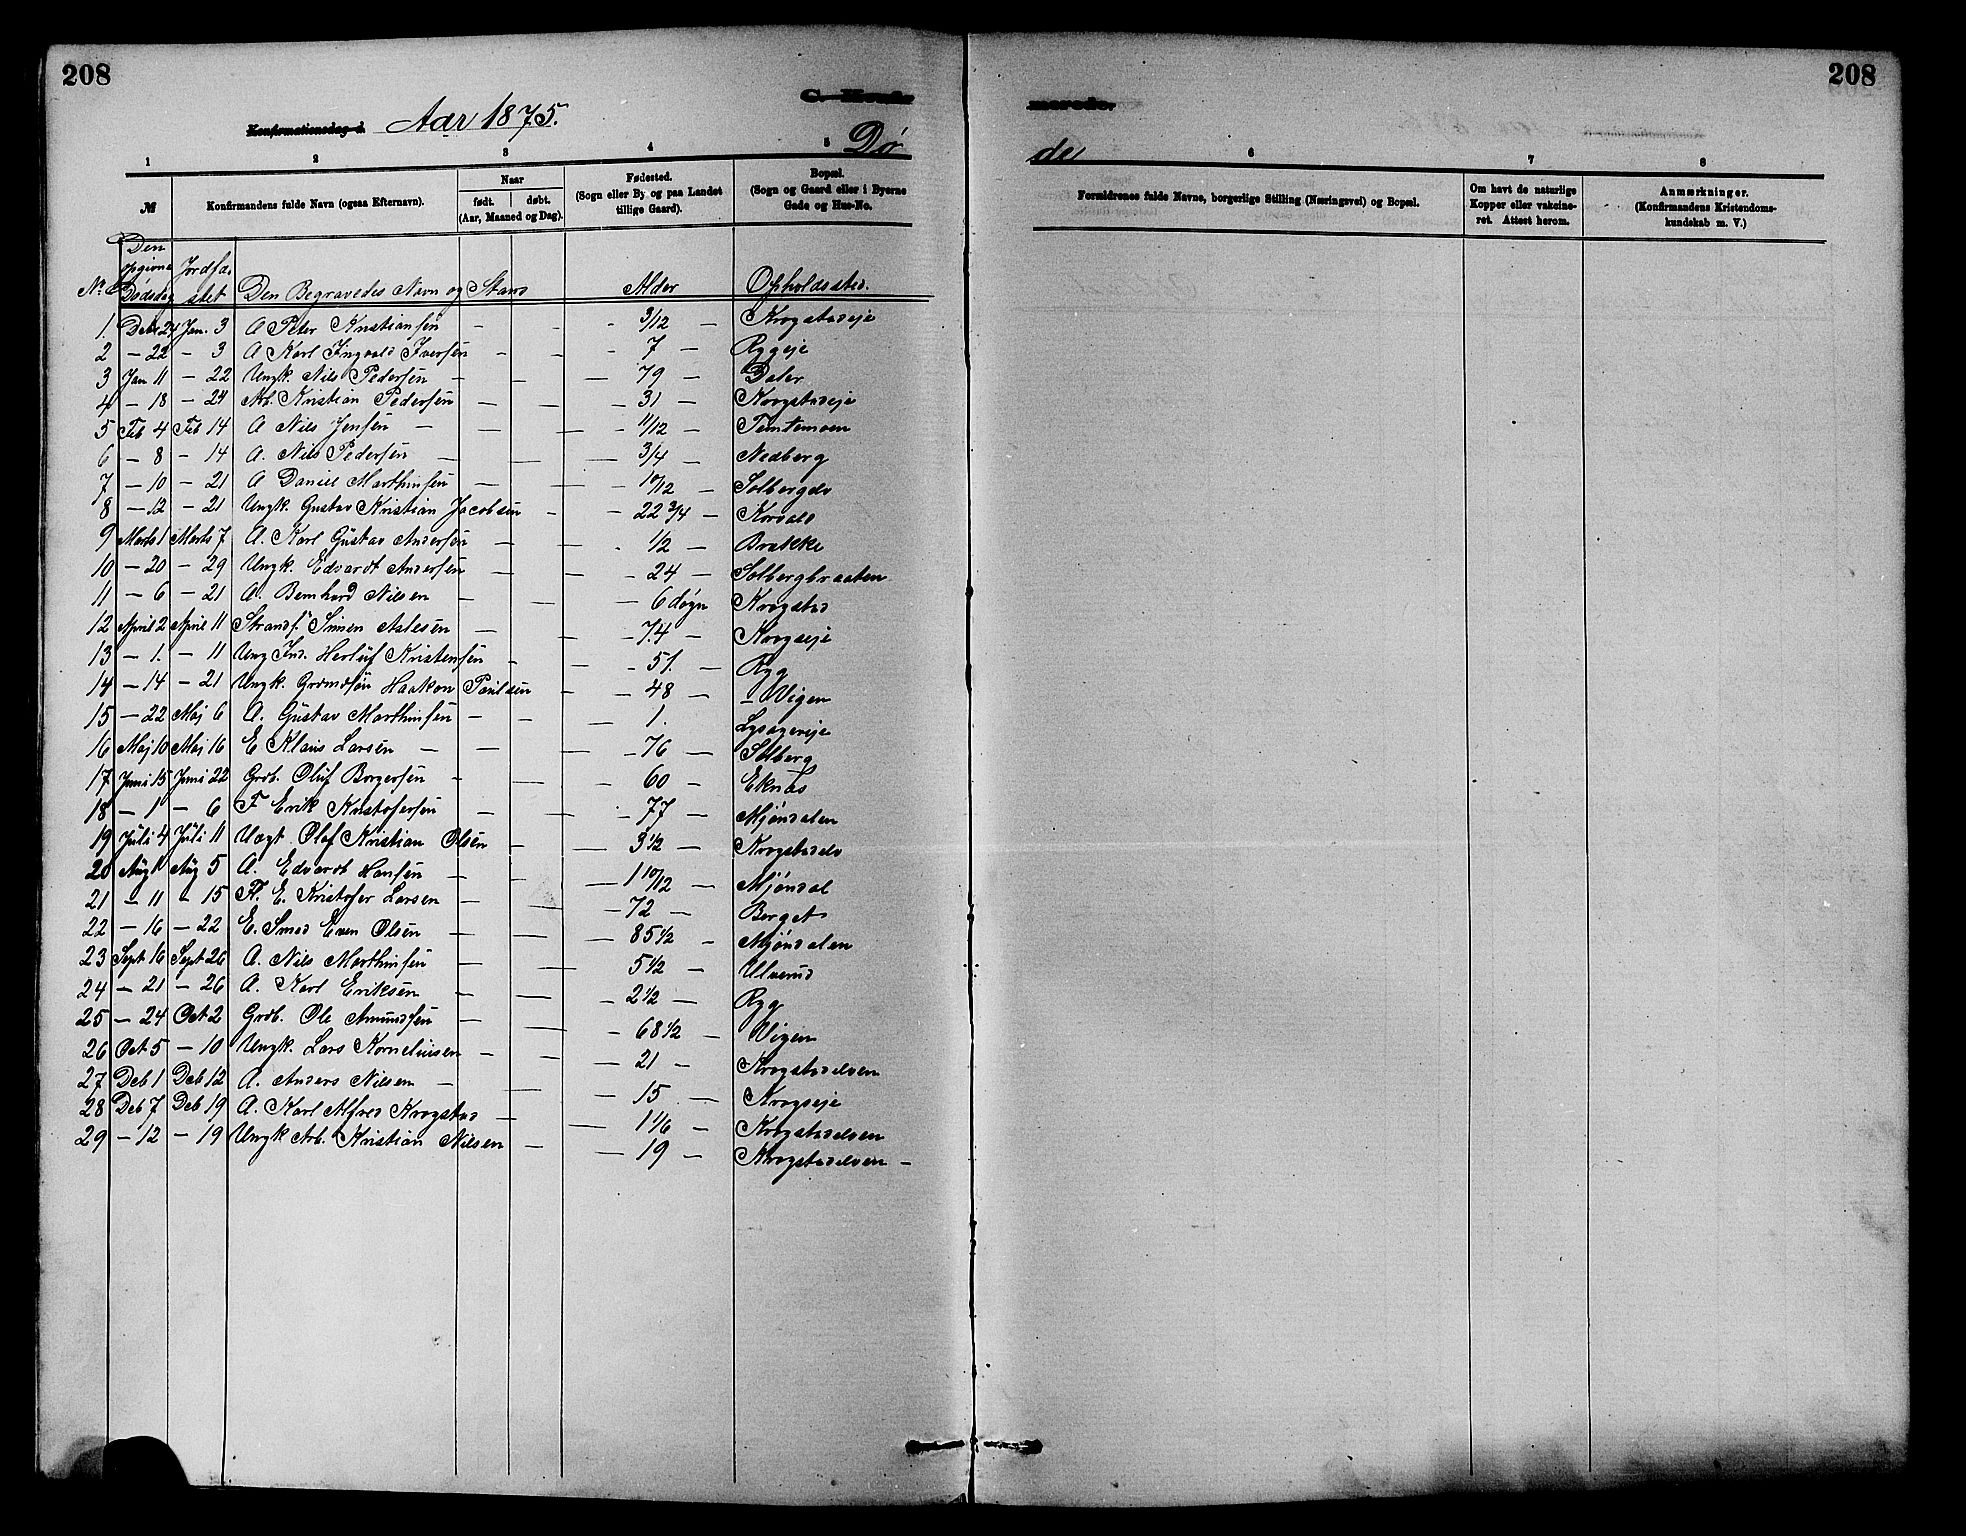 208
208
Konfirmationsdag d. Aar 1875.
C. Konfir
merede.
Døde
1 2 3 4 5 6 7 8
№ Konfirmandens fulde Navn (ogsaa Efternavn). Naar født. døbt. (Aar, Maaned og Dag). Fødested. (Sogn eller By og paa Landet tillige Gaard). Bopæl. (Sogn og Gaard eller i Byerne Gade og Hus-No. Forældrenes fulde Navne, borgerlige Stilling (Næringsvei) og Bopæl. Om havt de naturlige Kopper eller vaksineret. Attest herom. Anmærkninger. (Konfirmandens Kristendomskundskab m. V.)
No Den opgivne Dødsdag Jordfæstet Den Begravedes Navn og Stand Alder Opholdssted.
1. Debr 24 Jan. 3 A Peter Kristiansen — — — 3/12 — Krogstadeje
2 — 22 — 3 A Karl Ingvald Iversen — — - 7 — Rygeje
3 Jan 11 — 22 Ungk. Nils Pedersen — — — 79 — Daler
4 — 18 — 24 Arb. Kristian Pedersen — — — 31 — Krogstadeje
5 Feb 4 Feb 14 A Nils Jensen — — — 11/12 — Temtemoen
6 — 8 — 14 A. Nils Pedersen — — — 3/4 — Nedberg
7 — 10 — 21 A Daniel Marthinsen — — — 10/12 — Solbergelv
8 — 12 — 21 Ungk. Gustav Kristian Jacobsen - — 22 3/4 — Korvald
9 Marts 1 Marts 7 A. Karl Gustav Andersen — — . 1/2 — Brække
10 — 20 — 29 Ungk. Edvardt Andersen — — — 24 — Solbergbraaten
11 — 6 — 21 A. Bernhard Nilsen — — — 6 døgn Krogstad
12 April 2 April 11 Strandf. Simen Aslesen — — — 74 — Krogseje
13 — 1. — 11 Ung Ind. Herluf Kristensen - — — 51. — Ryg
14 — 14 — 21 Ungk. Grdmdsøn Haakon Paulsen — — 48 — Vigen
15 — 22 Maj 6 A. Gustav Marthinsen — — — 1. Lysagereje
16 Maj 10 Maj 16 E Klaus Larsen — — — — 76 — Solberg
17 Juni 15 Juni 22 Grdb. Oluf Borgersen — — — 60 — Eknæs
18 — 1 — 6 F Erik Kristofersen — — — 77 — Mjøndalen
19 Juli 4 Juli 11 Vægt. Olaf Kristian Olsen — — 3 1/2 — Krogstadelv
20 Aug 1 Aug 5 A. Edvardt Hansen — — — 1 10/12 — Mjøndal
21 — 11 — 15 Fl. E. Kristofer Larsen — — — 72 — Berget
22 — 16 — 22 E. Smed Even Olsen — — — 85 1/2 — Mjøndalen
23 Sept 16 Sept 26 A. Nils Marthinsen — — — 5 1/2 — Ulverud
24 — 21 — 26 A. Karl Eriksen — — — 2 1/2 — Ryg
25 — 24 Oct 2 Grdb. Ole Amundsen — — - 68 1/2 — Vigen
26 Oct 5 — 10 Ungk. Lars Korneliusen — — — 21 — Krogstadelven
27 Deb 1 Deb 12 A. Anders Nilsen — — — 15 — Krogseje
28 Deb 7 Deb 19 A. Karl Alfred Krogstad — — 1 1/6 — Krogstadelven
29 — 12 — 19 Ungk Arb. Kristian Nilsen — — 19 — Krogstadelven —